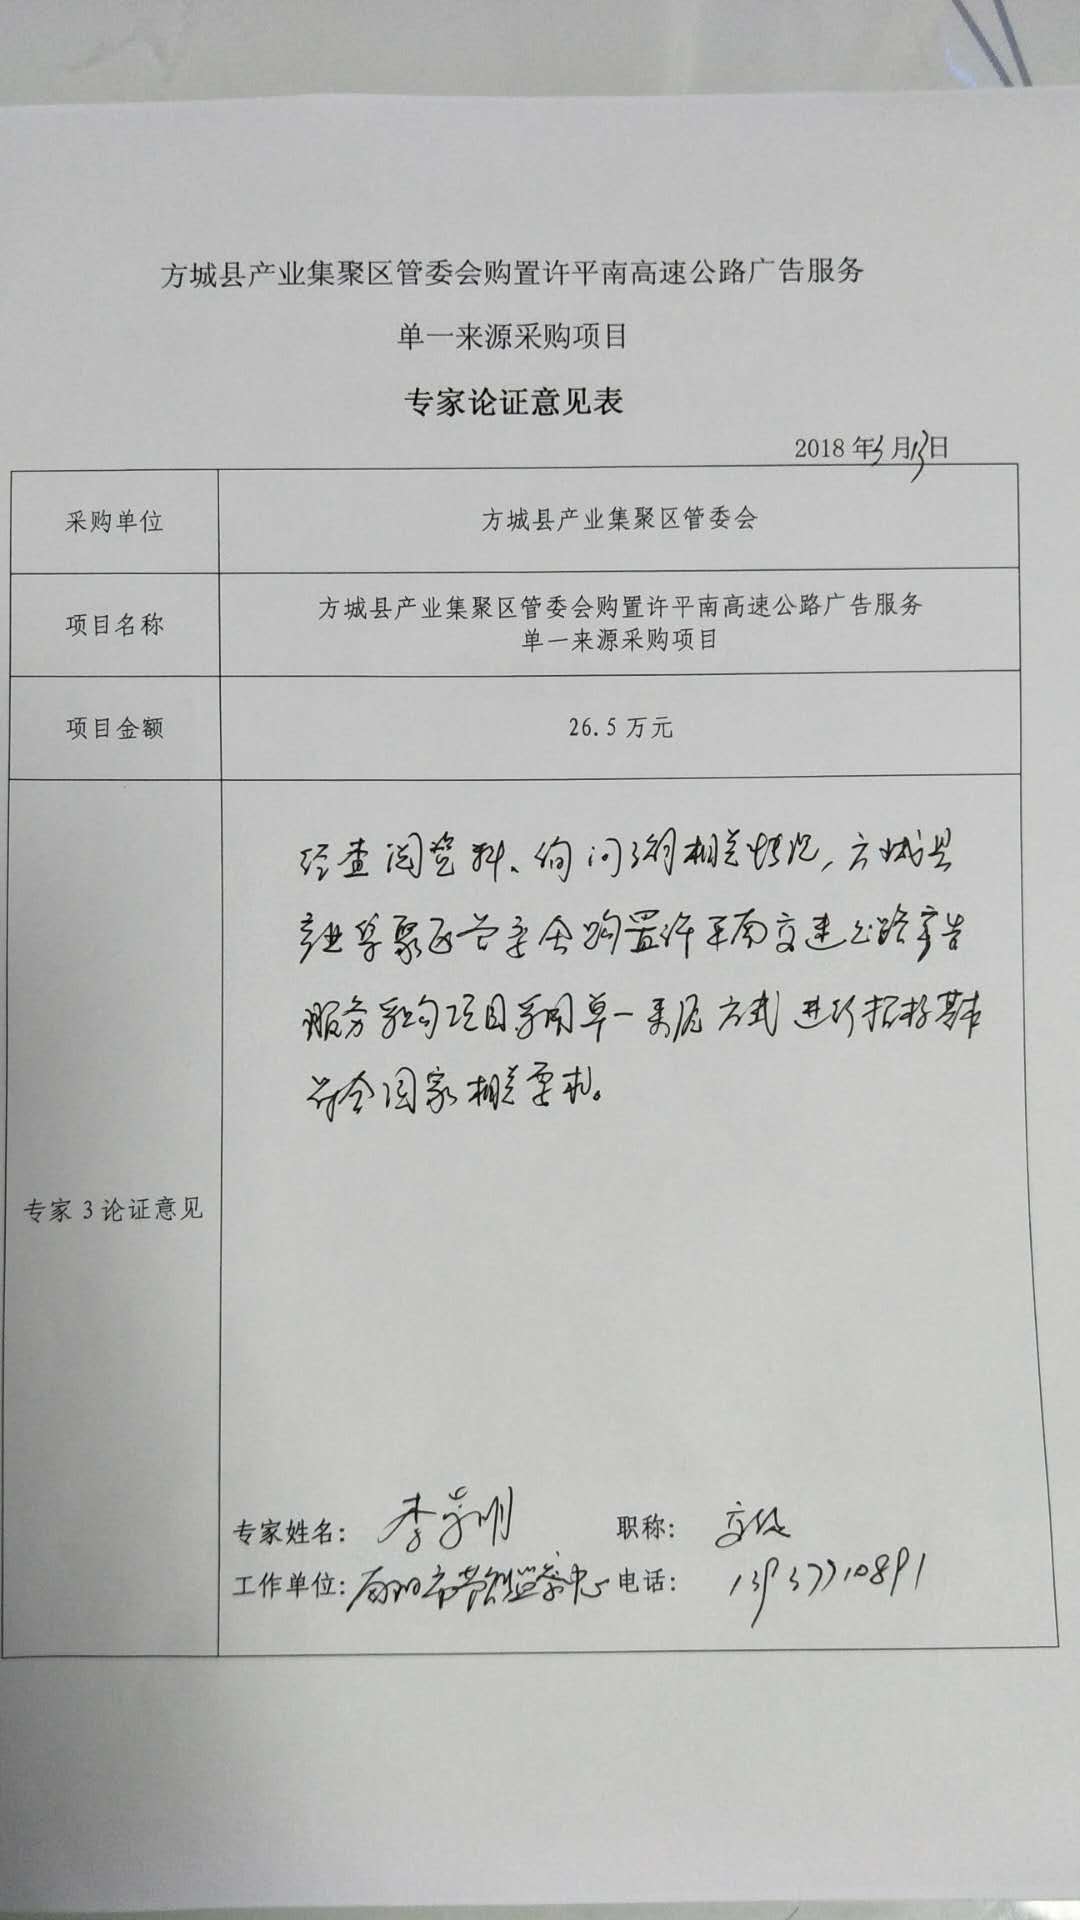 方城县产业集聚区管委会购置许平南高速公路广告服务
单一来源采购项目
专家论证意见表
2018年3月13日
采购单位
方城县产业集聚区管委会
项目名称
方城县产业集聚区管委会购置许平南高速公路广告服务
单一来源采购项目
项目金额
26.5万元
专家3论证意见
经查阅资料、询问了解相关情况,方城县
产业集聚区管委会购置许平南高速公路广告
服务采购项目采用单一来源方式进行招标基本
符合国家相关要求。
专家姓名: 李 明
职称: 高级
工作单位: 南阳市 监察中心
电话: 13937710891